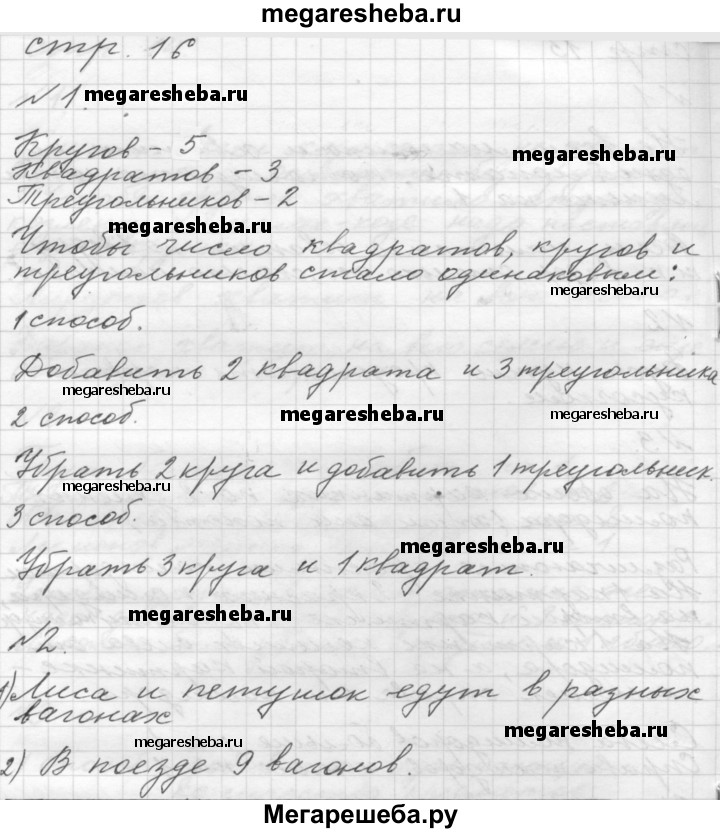 megaresheba.ru
стр. 16
№1. megaresheba.ru
Кругов - 5
megaresheba.ru
Квадратов - 3
Треугольников - 2
megaresheba.ru
Чтобы число квадратов, кругов и
треугольников стало одинаковым:
megaresheba.ru
1 способ.
megaresheba.ru
Добавить 2 квадрата и 3 треугольника
megaresheba.ru
2 способ. megaresheba.ru megaresheba.ru
Убрать 2 круга и добавить 1 треугольник.
megaresheba.ru
3 способ.
megaresheba.ru
Убрать 3 круга и 1 квадрат.
megaresheba.ru
№2.
1) Лиса и петушок едут в разных
вагонах
megaresheba.ru
megaresheba.ru
2) В поезде 9 вагонов.
Мегарешеба.ру